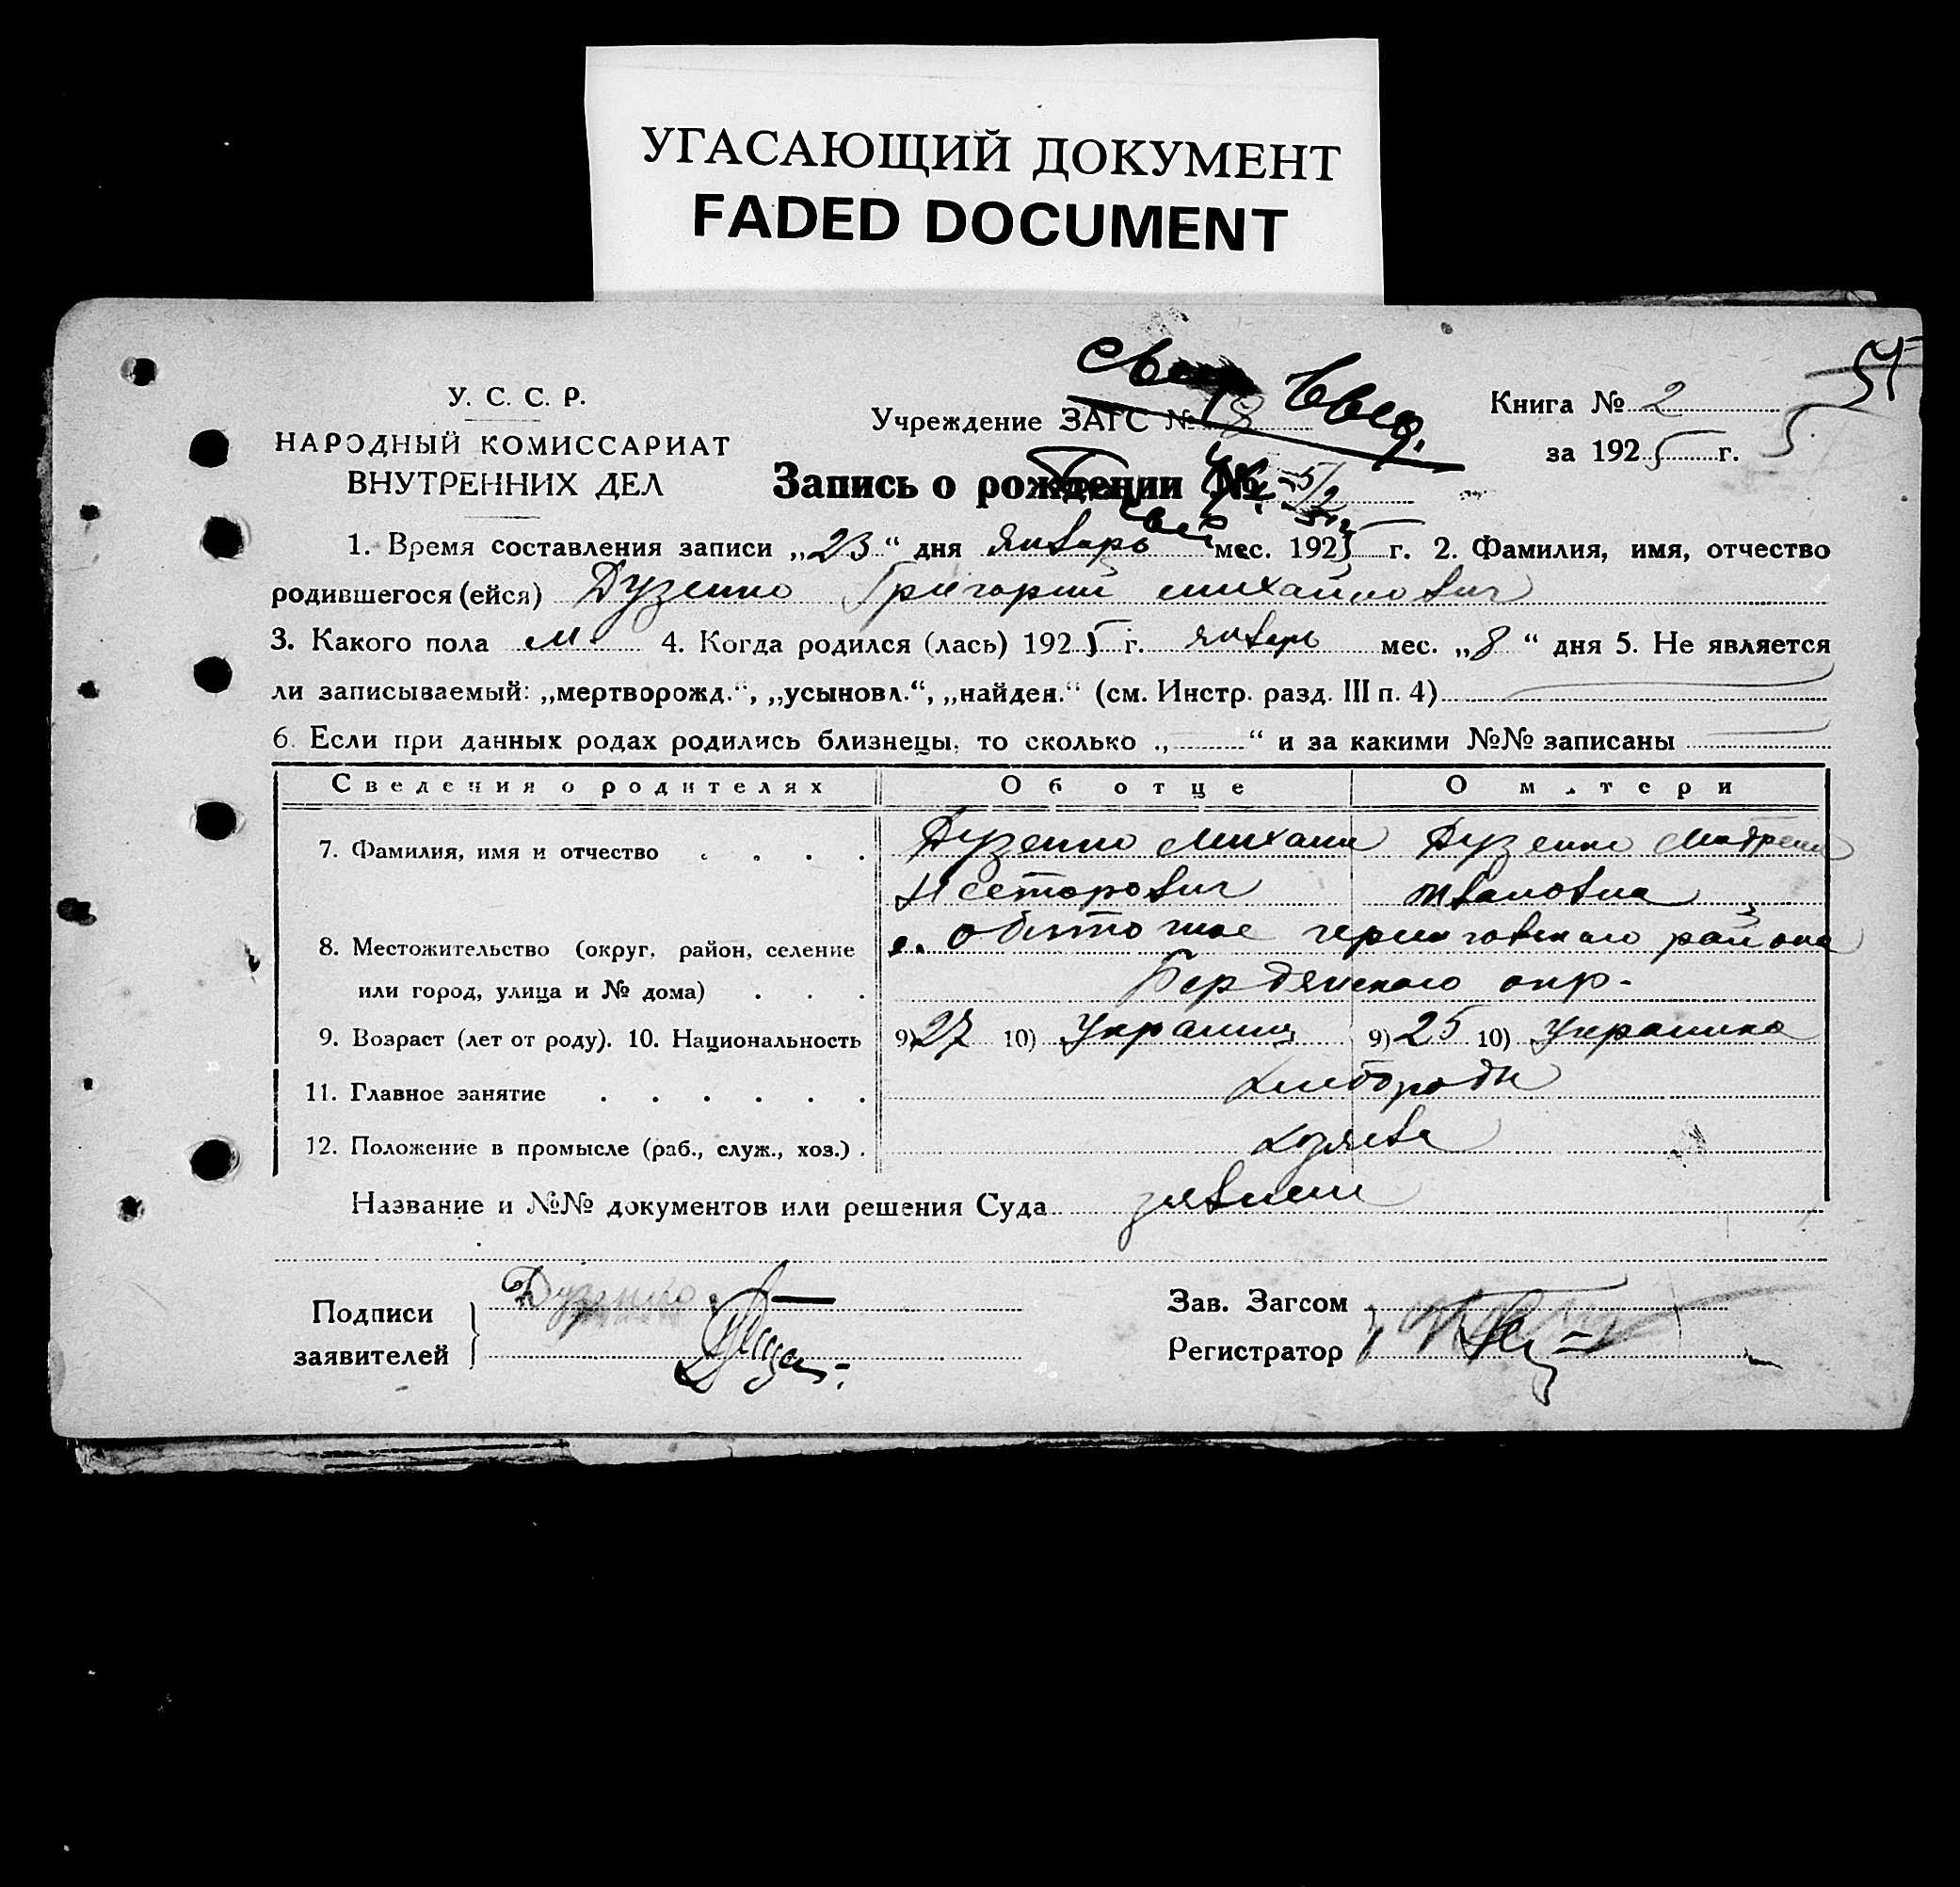 УГАСАЮЩИЙ ДОКУМЕНТ
FADED DOCUMENT
У. С. С. Р.
НАРОДНЫЙ КОМИССАРИАТ
ВНУТРЕННИХ ДЕЛ
Учреждение ЗАГС № 8
свид.
Книга № 2
за 1925 г.
5
Запись о рождении № 5/2
1. Время составления записи „23“ дня январь мес. 1925 г. 2. Фамилия, имя, отчество
родившегося (ейся) Дузенко Григорий михайлович
3. Какого пола м. 4. Когда родился (лась) 1925 г. январь мес. „8“ дня 5. Не является
ли записываемый: „мертворожд.“, „усыновл.“, „найден.“ (см. Инстр. разд. III п. 4)
6. Если при данных родах родились близнецы, то сколько „ “ и за какими №№ записаны
Сведения о родителях Об отце О матери
7. Фамилия, имя и отчество . . . . Дузенко Михаил Дузенко Матрена
Нестерович Ивановна
8. Местожительство (округ, район, селение с. Обиточное черниговского района
или город, улица и № дома) . . . Бердянского окр.
9. Возраст (лет от роду). 10. Национальность 9) 27 10) Украинц 9) 25 10) Украинка
11. Главное занятие . . . . . . хлебороды
12. Положение в промысле (раб., служ., хоз.) . хозяева
Название и №№ документов или решения Суда
Подписи
заявителей
Дузенко
Зав. Загсом
Регистратор